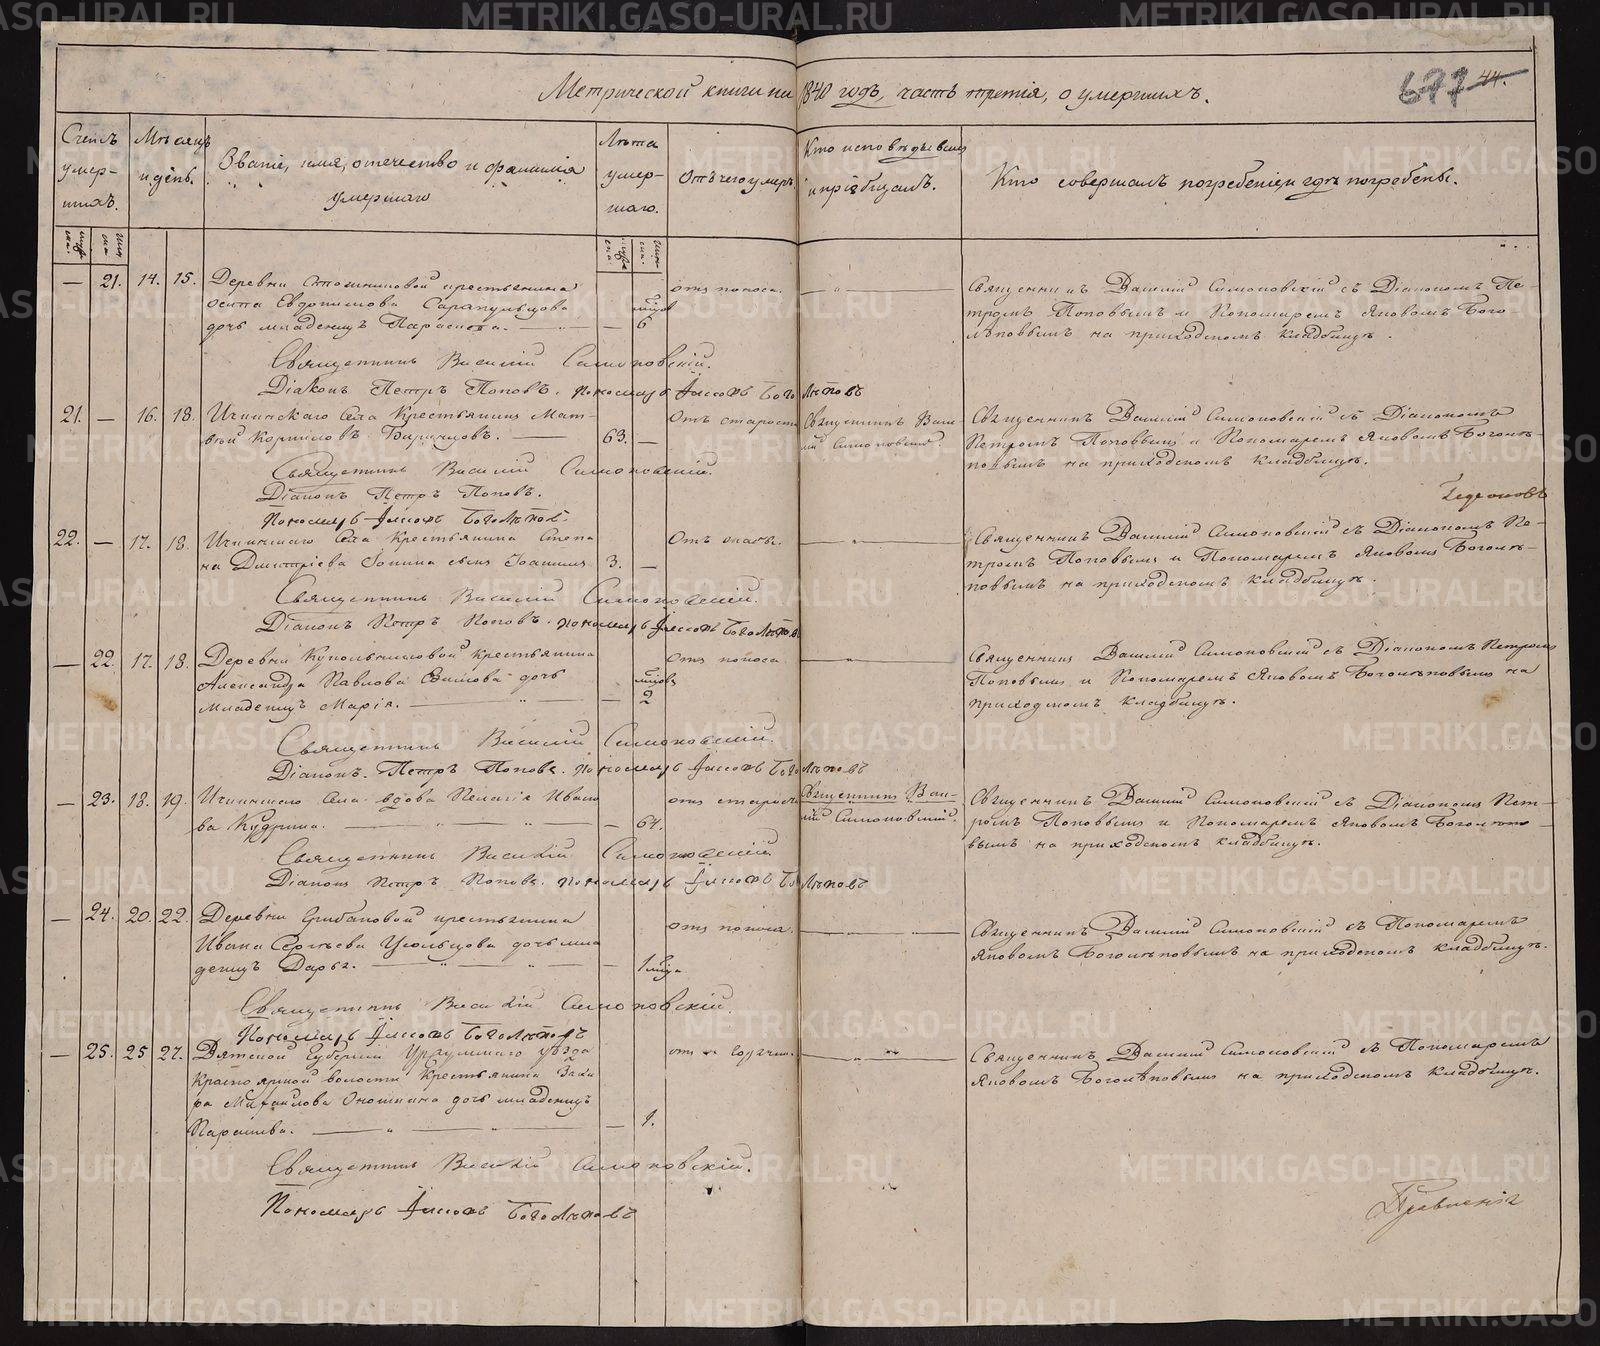 Метрической книги на 1840 годъ, часть третія, о умершихъ.
677 44.
Счетъ умер-шихъ.
Мѣсяцъ и день.
Званіе, имя, отечество и фамилія умершаго
Лѣта умер-шаго.
Отъ чего умеръ
Кто исповѣдывалъ и пріобщалъ.
Кто совершалъ погребеніе и гдѣ погребены.
— 21. 14. 15. Деревни крестьянина
отъ поноса.
Осипа Евдокимова Сарапульцова
дочь младенецъ Параскева. — 6
Священникъ Василій Симоновскій съ Діакономъ Пе-
тромъ Поповымъ и Пономаремъ Яковомъ Бого-
лѣповымъ на приходскомъ кладбищѣ.
Священникъ Василій Симоновскій.
Діаконъ Петръ Поповъ. Пономарь Іаковъ Боголѣповъ
21. — 16. 18. Ичкинскаго Села Крестьянинъ Мат-
вѣй Корниловъ 63. —
Отъ старости
Священникъ Васи-
лій Симоновскій
Священникъ Василій Симоновскій съ Діакономъ
Петромъ Поповымъ и Пономаремъ Яковомъ Боголѣ-
повымъ на приходскомъ кладбищѣ.
Священникъ Василій Симоновскій.
Діаконъ Петръ Поповъ.
Пономарь Іаковъ Боголѣповъ.
22. — 17. 18. Ичкинскаго Села Крестьянина Степа-
на Дмитріева Іонина сынъ Іоаннъ 3. —
Отъ оспы.
Священникъ Василій Симоновскій съ Діакономъ Пе-
тромъ Поповымъ и Пономаремъ Яковомъ Боголѣ-
повымъ на приходскомъ кладбищѣ.
Священникъ Василій Симоновскій.
Діаконъ Петръ Поповъ. Пономарь Іаковъ Боголѣповъ
— 22. 17. 18. Деревни крестьянина
отъ поноса
Александра Павлова дочь
младенецъ Марія. — 2
Священникъ Василій Симоновскій съ Діакономъ Петромъ
Поповымъ и Пономаремъ Яковомъ Боголѣповымъ на
приходскомъ кладбищѣ.
Священникъ Василій Симоновскій.
Діаконъ Петръ Поповъ. Пономарь Іаковъ Боголѣповъ
— 23. 18. 19. Ичкинскаго Села вдова Пелагія Ивано-
ва Кудрина. — 64.
отъ старости
Священникъ Васи-
лій Симоновскій.
Священникъ Василій Симоновскій съ Діакономъ Пет-
ромъ Поповымъ и Пономаремъ Яковомъ Боголѣпо-
вымъ на приходскомъ кладбищѣ.
Священникъ Василій Симоновскій
Діаконъ Петръ Поповъ. Пономарь Іаковъ Боголѣповъ
— 24. 20. 22. Деревни Грибановой крестьянина
отъ поноса.
Ивана Сергѣева Усольцова дочь мла-
денецъ Дарья. — 1
Священникъ Василій Симоновскій съ Пономаремъ
Яковомъ Боголѣповымъ на приходскомъ кладбищѣ.
Священникъ Василій Симоновскій.
Пономарь Іаковъ Боголѣповъ
— 25. 25 27. Вятской Губерніи Уржумскаго уѣзда
волости Крестьянина Заха-
ра Михайлова дочь младенецъ
Параскева. — 1.
отъ горячки.
Священникъ Василій Симоновскій съ Пономаремъ
Яковомъ Боголѣповымъ на приходскомъ кладбищѣ.
Священникъ Василій Симоновскій.
Пономарь Іаковъ Боголѣповъ
Правленія
METRIKI.GASO-URAL.RU